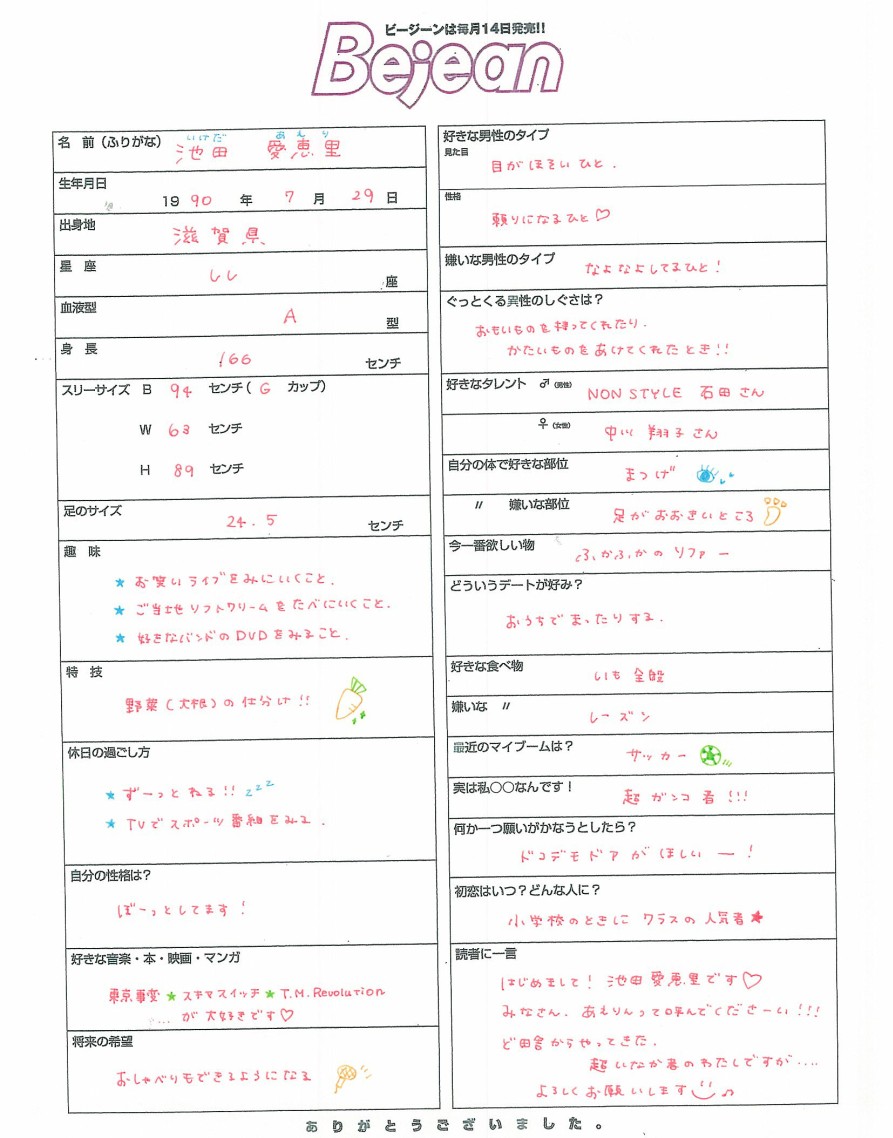 ビージーンは毎月14日発売!!
Bejean
いけだ あえり
名 前（ふりがな） 池田 愛恵里
生年月日
1990年 7月 29日
出身地 滋賀県
星 座 しし 座
血液型 A 型
身 長 166 センチ
スリーサイズ B 94 センチ（ G カップ）
W 63 センチ
H 89 センチ
足のサイズ 24.5 センチ
趣 味
★ お笑いライブをみにいくこと.
★ ご当地ソフトクリームをたべにいくこと.
★ 好きなバンドのDVDをみること.
特 技
野菜(大根)の仕分け!!
休日の過ごし方
★ ずーっとねる!! zzz
★ TVでスポーツ番組をみる.
自分の性格は？
ぼーっとしてます!
好きな音楽・本・映画・マンガ
東京事変★スキマスイッチ★T.M.Revolution
...が大好きです♡
将来の希望
おしゃべりもできるようになる
好きな男性のタイプ
見た目
目がほそいひと.
性格
頼りになるひと♡
嫌いな男性のタイプ なよなよしてるひと!
ぐっとくる異性のしぐさは？
おもいものを持ってくれたり.
かたいものをあけてくれたとき!!
好きなタレント ♂（男性） NON STYLE 石田さん
♀（女性） 中川 翔子さん
自分の体で好きな部位 まつげ
〃 嫌いな部位 足がおおきいところ
今一番欲しい物 ふかふかのソファー
どういうデートが好み？
おうちでまったりする.
好きな食べ物 いも全般
嫌いな 〃 レーズン
最近のマイブームは？ サッカー
実は私〇〇なんです！ 超ガンコ者!!!
何か一つ願いがかなうとしたら？
ドコデモドアがほしいー!
初恋はいつ？どんな人に？
小学校のときにクラスの人気者★
読者に一言
はじめまして! 池田愛恵里です♡
みなさん. あえりんって呼んでくださーい!!!
ど田舎からやってきた.
超いなか者のわたしですが....
よろしくお願いします♫
ありがとうございました。